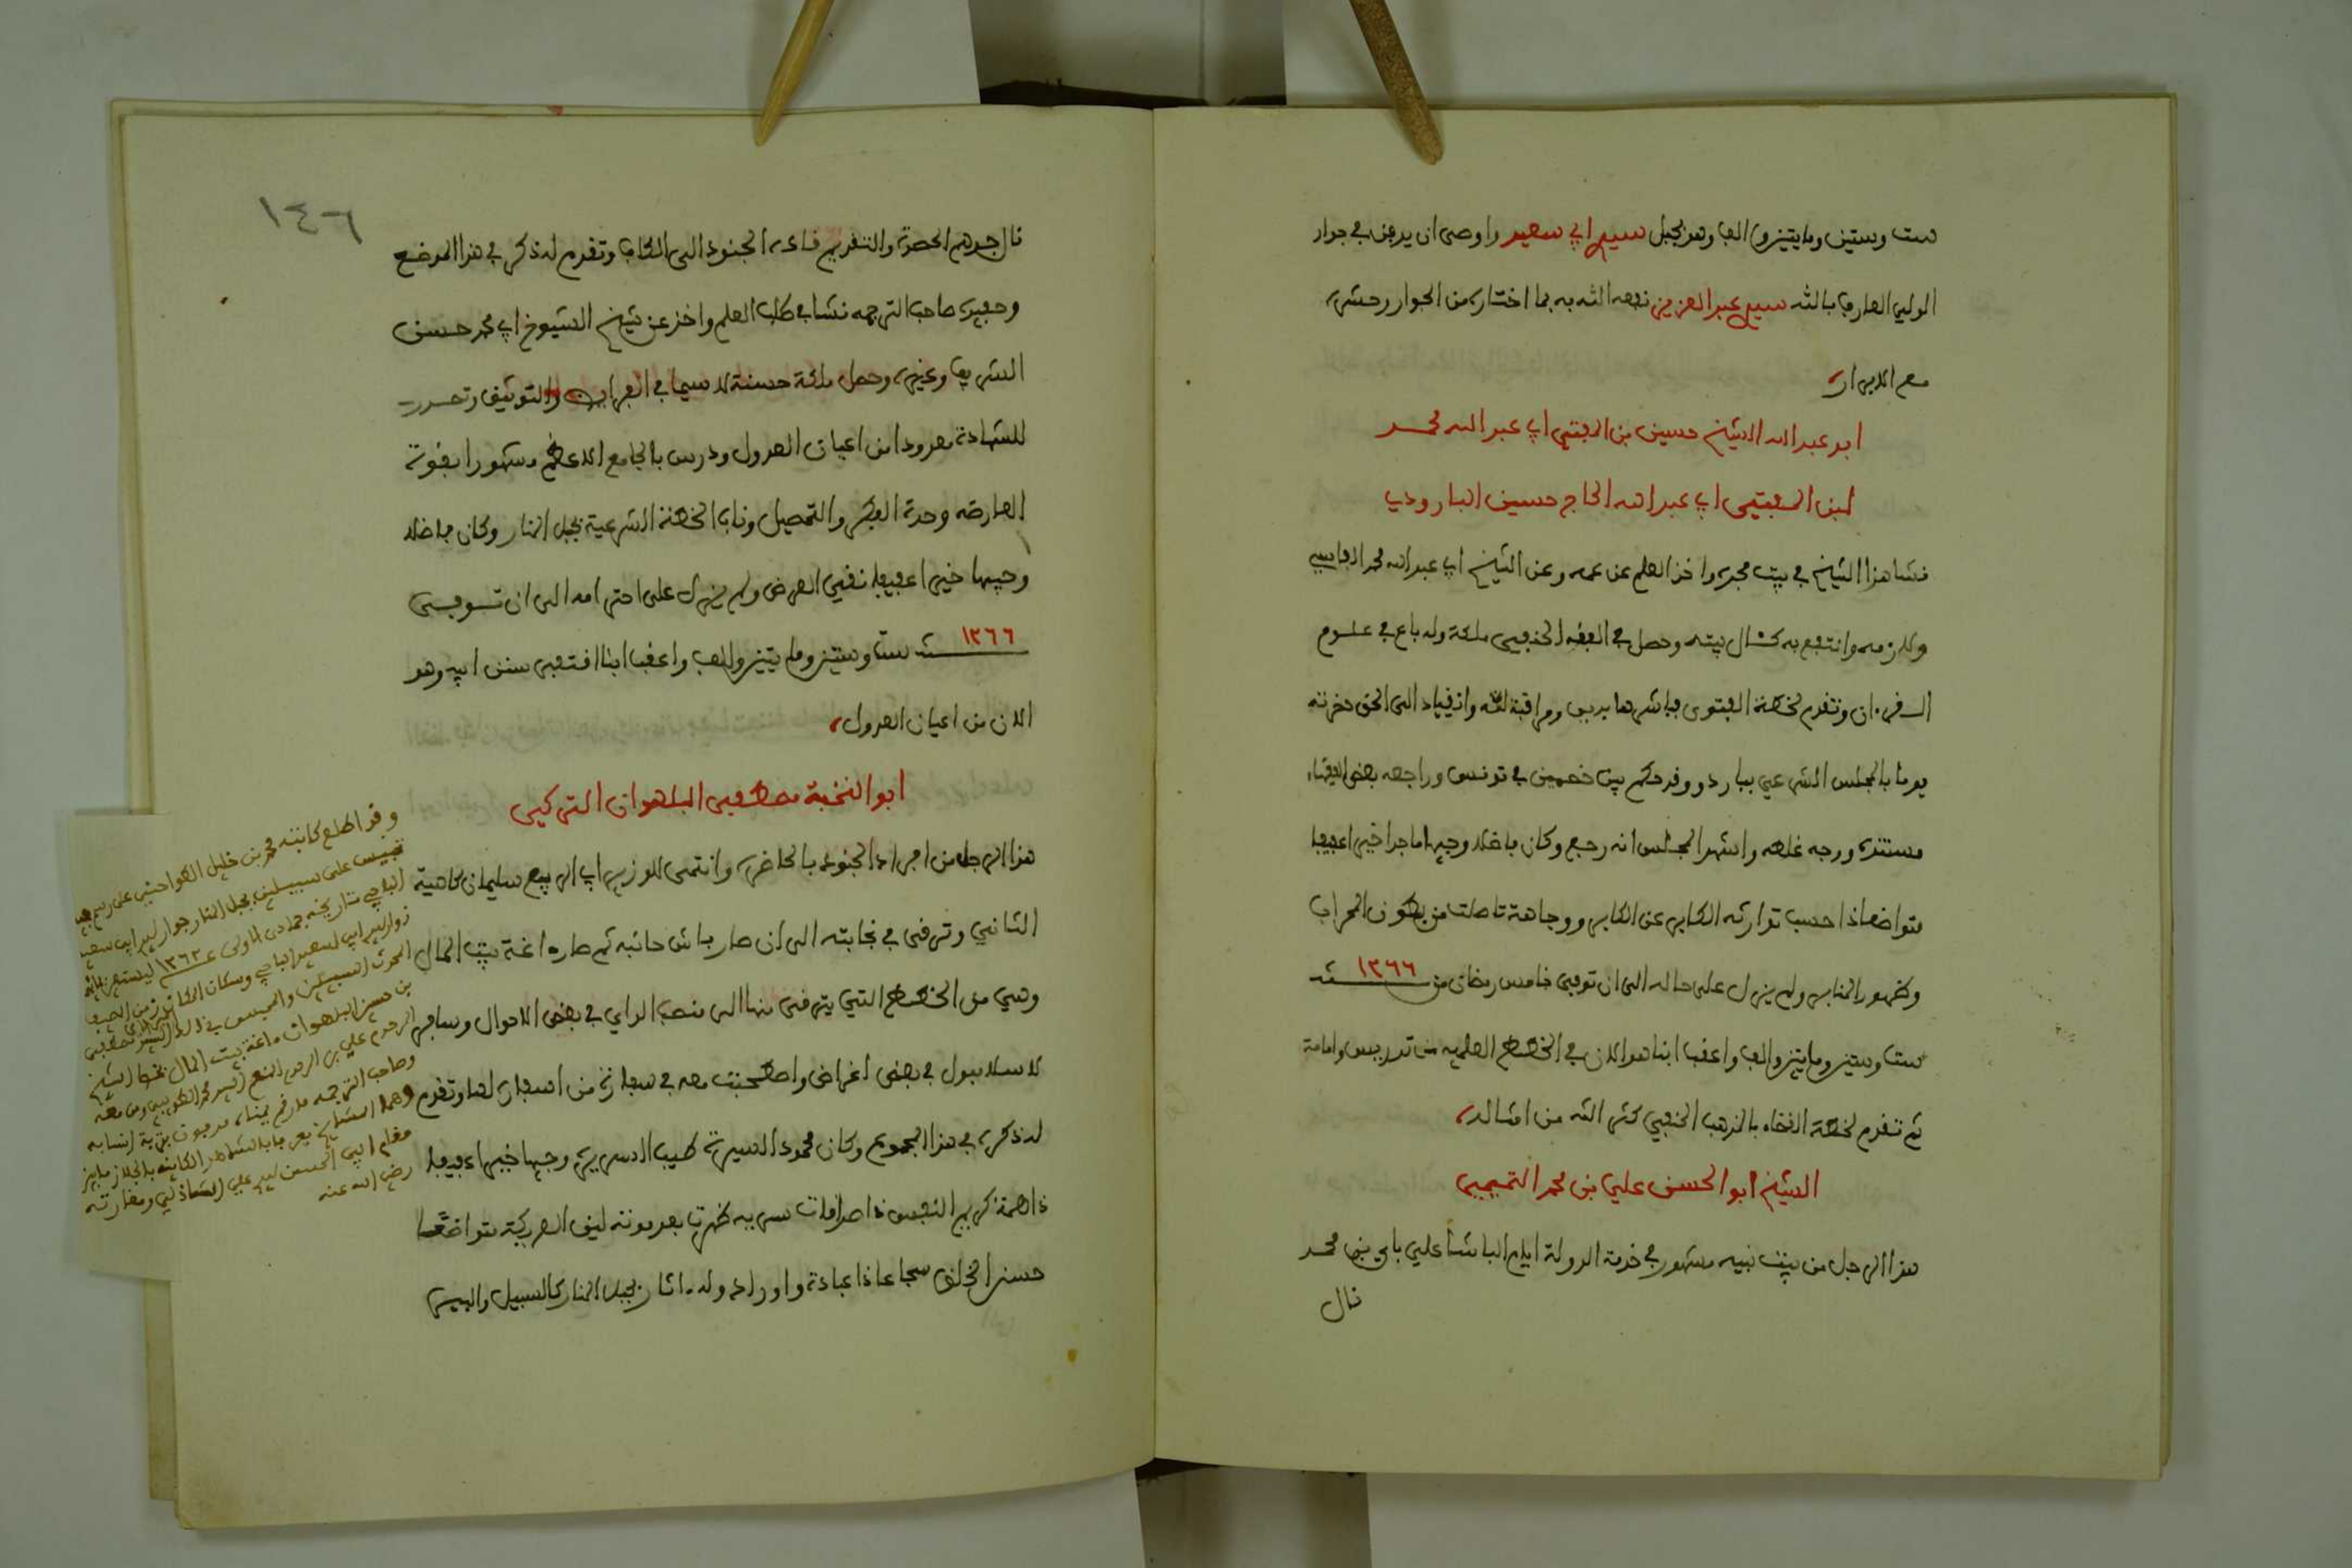 ست وستين ومايتين والف وهو بجبل سيدي ابي سعيد واوصى ان يدفن في جوار
الولي العارف بالله سيدي عبد العزيز نفعه الله به بما اختاره من الجوار وحشره
مع الابرار
ابو عبد الله الشيخ حسين بن المفتي ابي عبد الله محمد
ابن المفتي ابي عبد الله الحاج حسين البارودي
نشا هذا الشيخ في بيت مجده واخذ العلم عن عمه وعن الشيخ ابي عبد الله محمد الفاسي
ولازمه وانتفع به كشال بيته وحصل في الفقه الحنفي ملكة وله باع في علوم
القرءان وتقدم لخطة الفتوى فباشرها بدين ومراقبة لله وانقياد الى الحق حضرته
يوما بالمجلس الشرعي بباردو وقد حكم بين خصمين في تونس وراجعه بعض الفقهاء
مستنده ورجه غلطه واشهد المجلس انه رجع وكان فاضلا وجيها ماجدا خيرا عفيفا
متواضعا ذا حسب توارثه الكابر عن الكابر ووجاهة تاصلت من بطون المحراب
وظهور المنابر ولم يزل على حاله الى ان توفي خامس رمضان من ١٢٦٦ سنة
ست وستين ومايتين والف واعقب ابنا هو الان في الخطط العلميه من تدريس وامامة
ثم تقدم لخطة القضاء بالمذهب الحنفي كثر الله من امثاله
الشيخ ابو الحسن علي بن محمد التميمي
هذا الرجل من بيت نبيه مشهور في خدمة الدولة ايام الباشا علي باي بن محمد
نال
١٤٦
نال جدهم الحضوة والتقديم قاده الجنود الى الكاف وتقدم له ذكر في هذا الموضع
وحفيده صاحب الترجمه نشا في طلب العلم واخذ عن شيخ الشيوخ ابي محمد حسن
الشريف وغيره وحصل ملكة حسنة لا سيما في الفرايض والتوثيق وتصدر
للشهادة معدودا من اعيان العدول ودرس بالجامع الاعظم مشهورا بقوة
العارضه وحدة الفكر والتحصيل وناب الخطة الشرعية بجبل المنار وكان فاضلا
وجيها خيرا عفيفا نقي العرض ولم يزل على احترامه الى ان توفي
١٢٦٦ سنة ست وستين ومايتين والف واعقب ابنا اقتفى سنن ابيه وهو
الان من اعيان العدول
ابو النخبة مصطفى البلهوان التركي
هذا الرجل من افراد الجنود بالحاضره وانتمى للوزير ابي الربيع سليمان كاهية
الثاني وترقى في نجابته الى ان صار باش حانبه ثم صار اغة بيت المال
وهي من الخطط التي يترقى منها الى منصب الداي في بعض الاحوال وسافر
لاسلامبول في بعض اغراض واصطحبت معه في سفارة من اسفاره لها وتقدم
له ذكر في هذا المجموع وكان محمود السيرة طيب السريرة وجيها خيرا عفيفا
ذا همة كريم النفس ذا صدقات سريه ظهرت بعد موته لين العريكة متواضعا
حسن الخلق شجاعا ذا عبادة واوراد وله ءاثار بجبل المنار كالسبيل والبير
وقد اطلع كاتبه محمد بن خليل القواحني على رسم
تحبيس على سبيلين بجبل المنار جوار سيدي ابي سعيد
الباجي تاريخه جمادى الاولى ١٢٦٣
زوار سيدي ابي سعيد الباجي وسكان المكان زمن الصيف
المحرث السبيلين والمحبس في ذلك السيد مصطفى
بن حسن البلهوان اغة بيت المال
المرحوم علي بن المرحوم المنعم السيد محمد
وصاحب الترجمه مدفون بتربة
مقام ابي الحسن سيدي علي الشاذلي ومغارته
رضي الله عنه